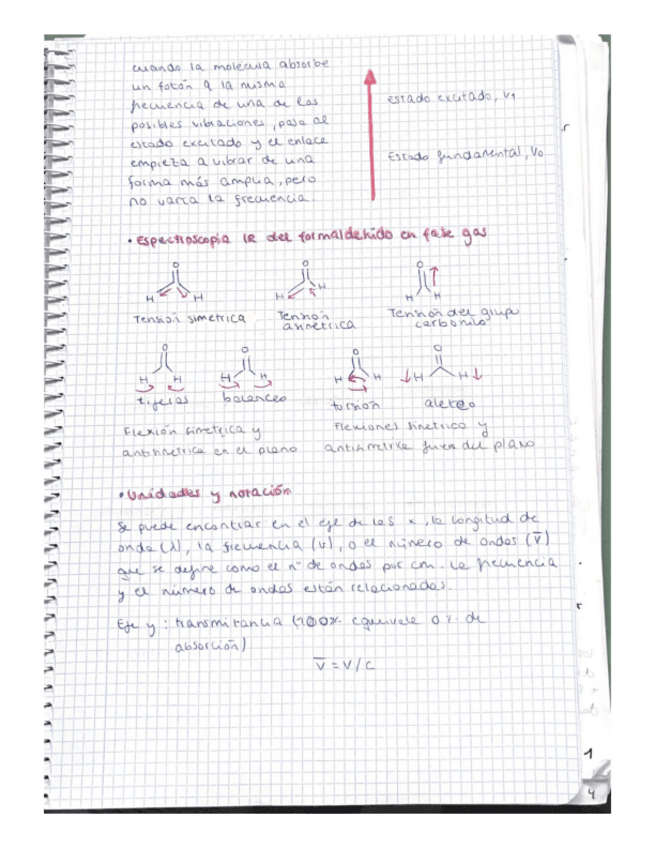 cuando la molécula absorbe
un fotón a la misma
frecuencia de una de las
posibles vibraciones, pasa al
estado excitado y el enlace
empieza a vibrar de una
forma más amplia, pero
no varía la frecuencia.
estado excitado, V1
Estado fundamental, V0
• Espectroscopia IR del formaldehido en fase gas
O O O
H H H H H H
Tensión simetrica Tensión asimetrica Tensión del grupo carbonilo
O O O O
H H H H H H H H
tijeras balanceo torsión aleteo
Flexión simetrica y
antisimetrica en el plano
Flexiones simetrica y
antisimetrica fuera del plano
• Unidades y notación
Se puede encontrar en el eje de las x, la longitud de
onda (λ), la frecuencia (ν), o el número de ondas (ν̅)
que se define como el nº de ondas por cm. La frecuencia
y el número de ondas están relacionados.
Eje y: transmitancia (100% equivale 0% de
absorción)
ν̅ = ν/c
1
4